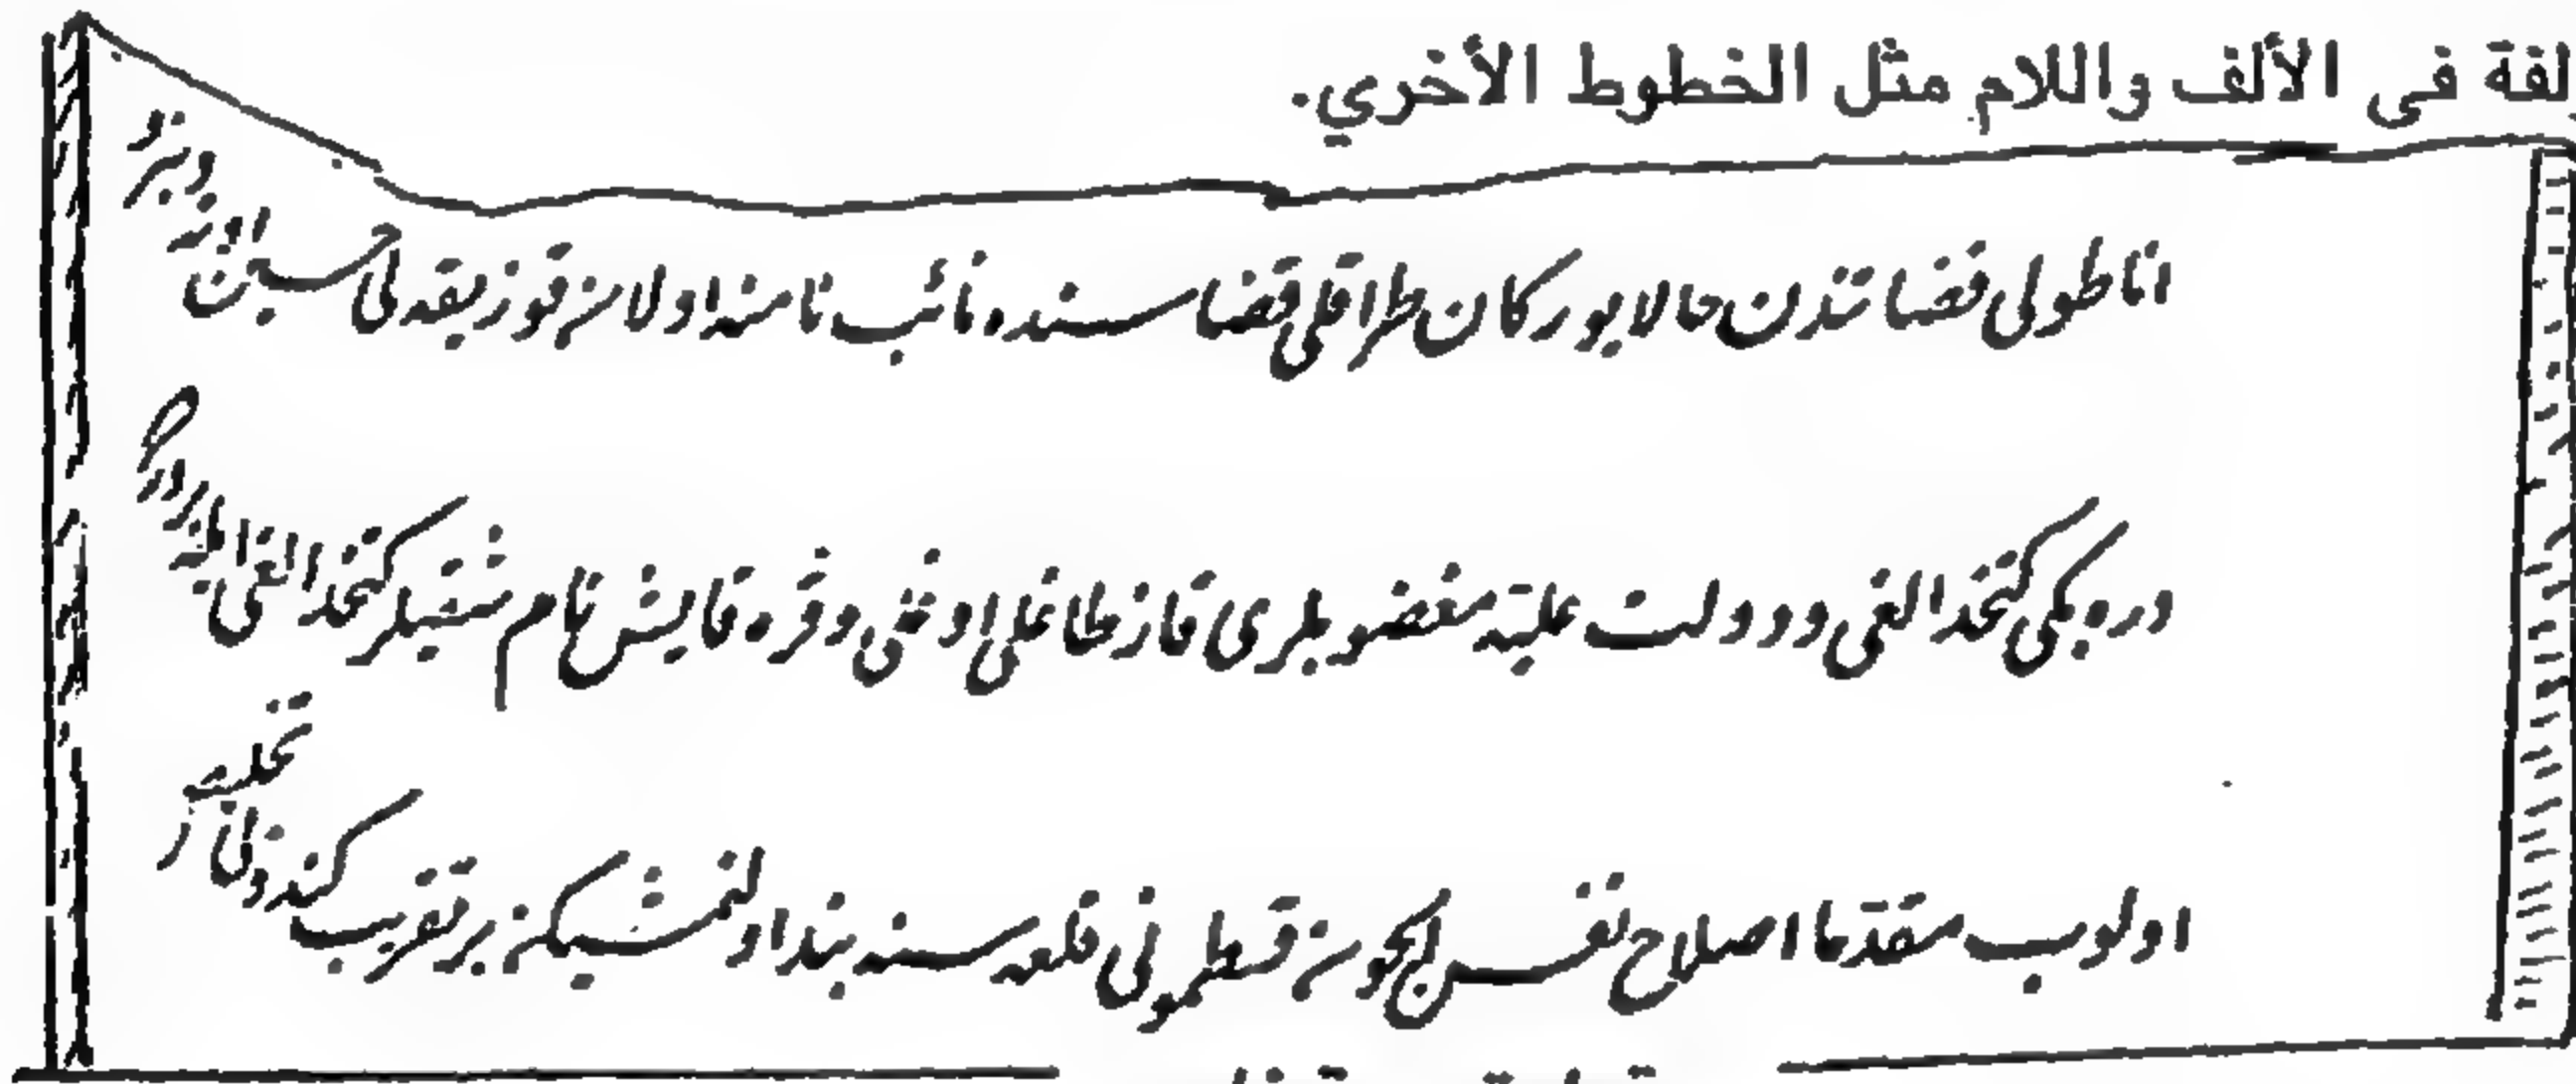 لفة فى الألف واللام مثل الخطوط الأخري.
اناطولى قضاتندن حالا بوركان طراقلى قضاسنده نائب نامنه اولان قوزيقه لى حسين اوزر
كتخدالغى ودولت عليه مغضوبلرى قازطاغلى اوغلى وقره قايش نام شقيلر كتخدالغى
اولوب مقدما اصلاح نفس ايچون قسطمونى قلعه سنه بند اولنمشيكن بر تقريب كندونى تخليه